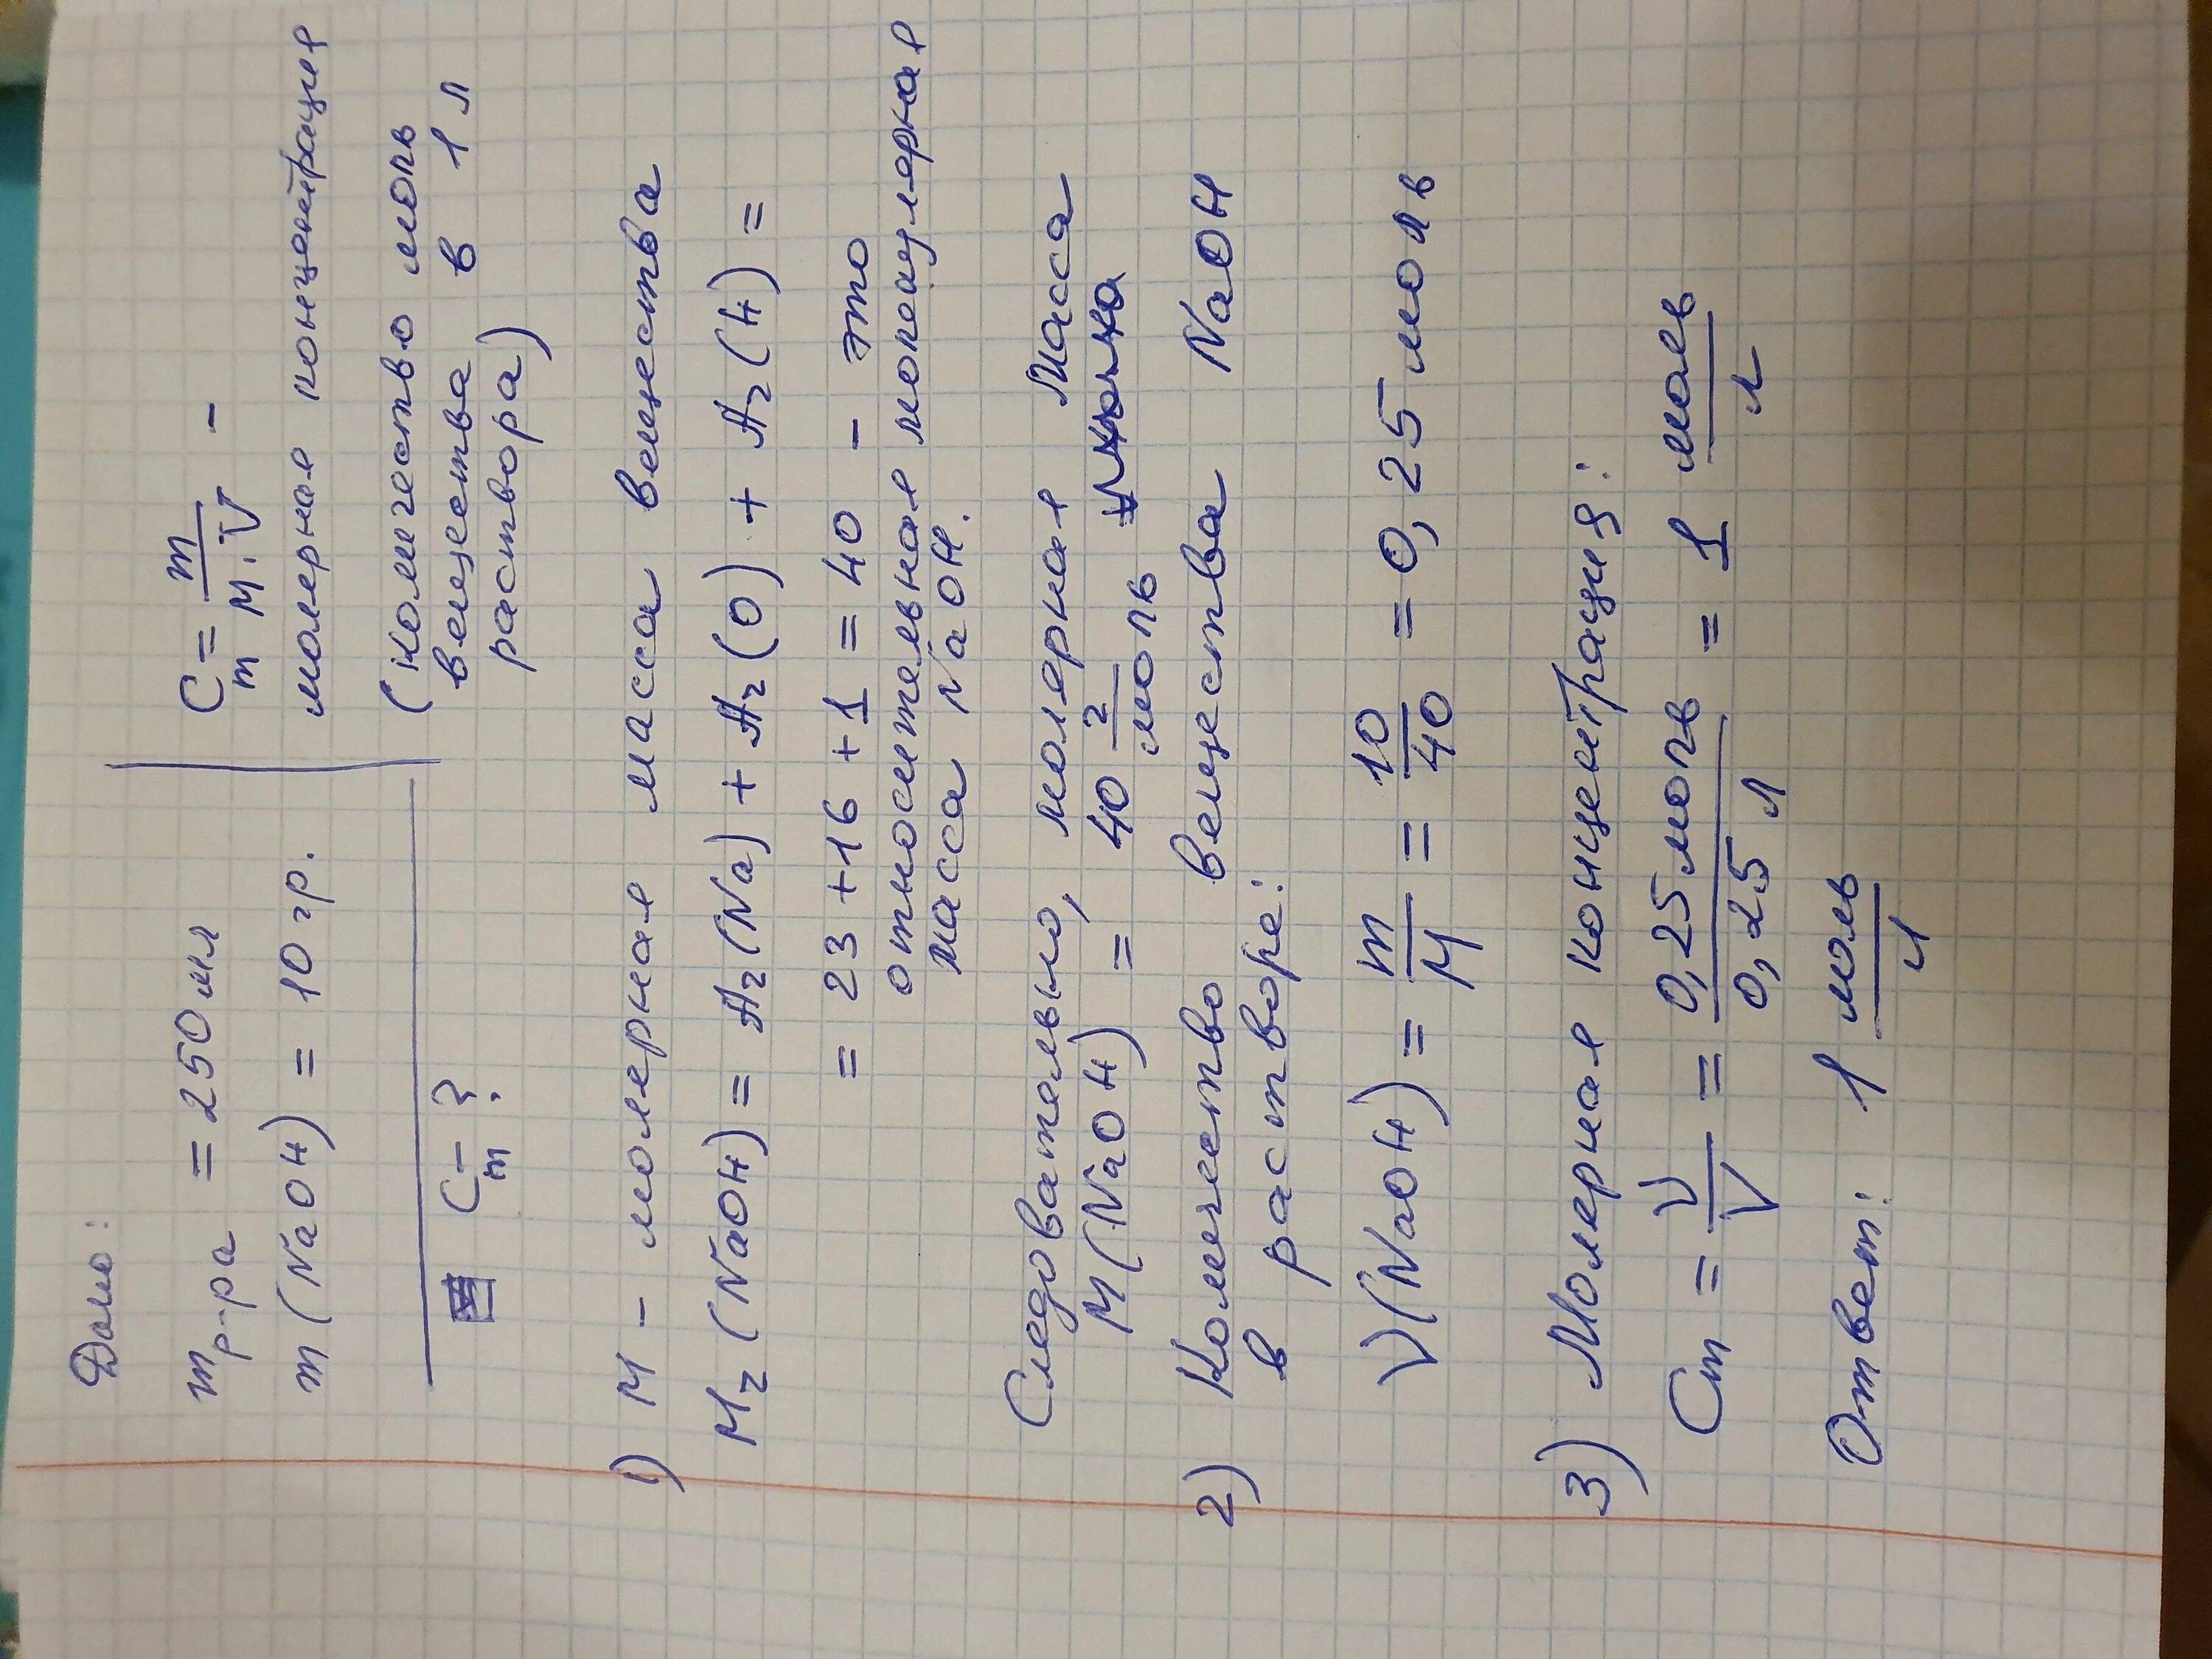 Дано:
m р-ра = 250 мл
m (NaOH) = 10 гр.
Cm - ?
Cm = m / M · V -
молярная концентрация
(количество моль
вещества в 1 л
раствора)
1) M - молярная масса вещества
Mr (NaOH) = Ar (Na) + Ar (O) + Ar (H) =
= 23 + 16 + 1 = 40 - это
относительная молекулярная
масса NaOH.
Следовательно, молярная масса
M (NaOH) = 40 г/моль
2) Количество вещества NaOH
в растворе:
ν (NaOH) = m/M = 10/40 = 0,25 моль
3) Молярная концентрация:
Cm = ν/V = 0,25 моль / 0,25 л = 1 моль/л
Ответ: 1 моль/л